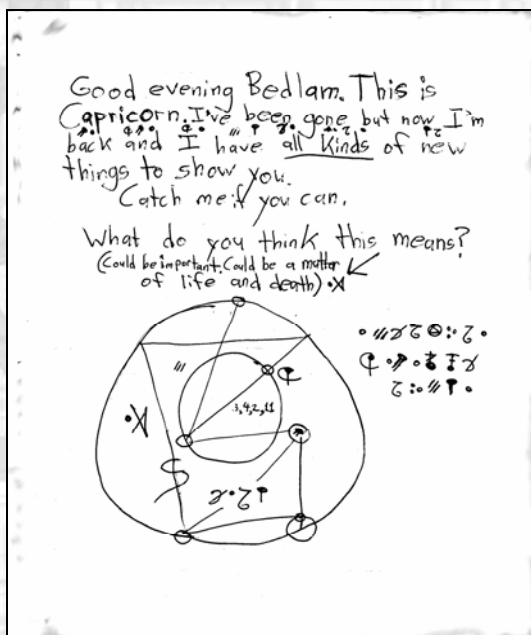 Good evening Bedlam. This is
Capricorn. I've been gone but now I'm
back and I have all kinds of new
things to show you.
Catch me if you can.
What do you think this means?
(Could be important. Could be a matter
of life and death)
3,4,2,11